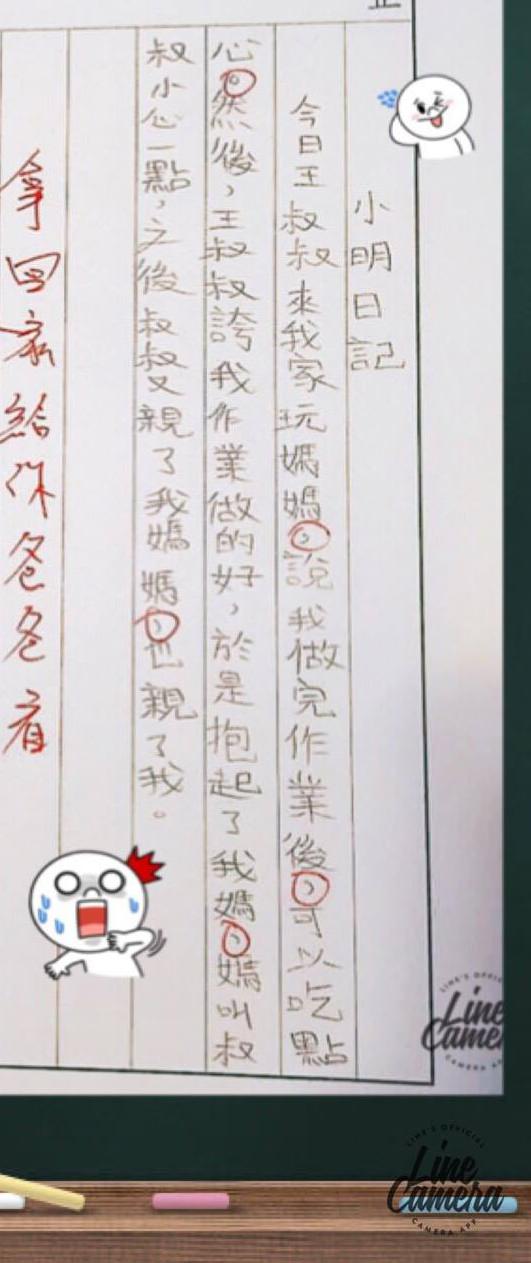 小明日記
今日王叔叔來我家玩媽媽，說我做完作業後，可以吃點
心。然後，王叔叔誇我作業做的好，於是抱起了我媽，媽叫叔
叔小心一點，之後叔叔又親了我媽媽，也親了我。
拿回家給你爸爸看
Line
Camera
LINE'S OFFICIAL
Line
Camera
CAMERA APP